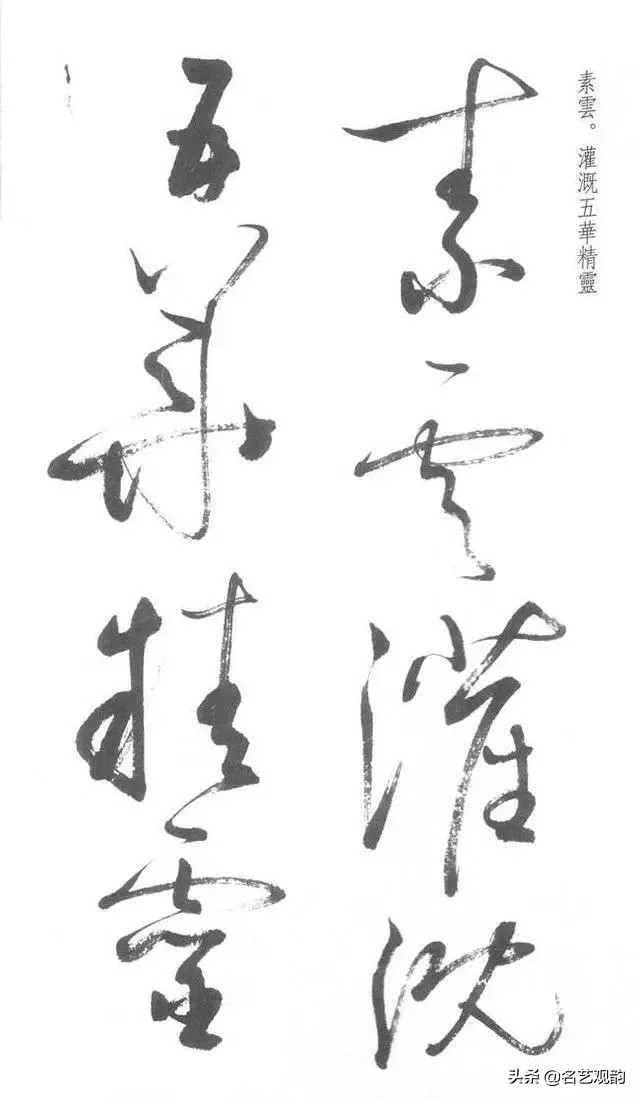 素雲。灌溉五華精靈
素雲灌溉
五華精靈
头条 @名艺观韵